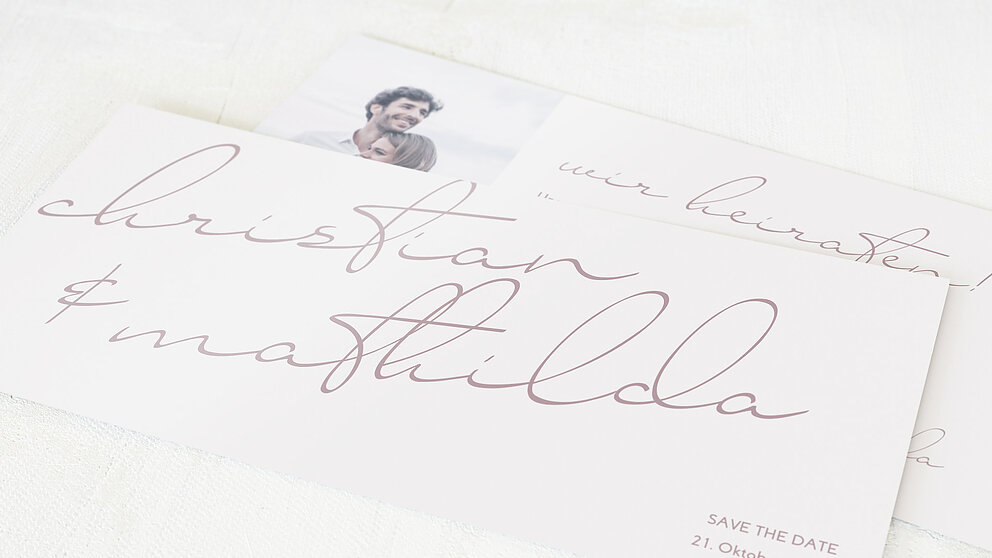 christian
& mathilda
SAVE THE DATE
21.
wir heiraten!